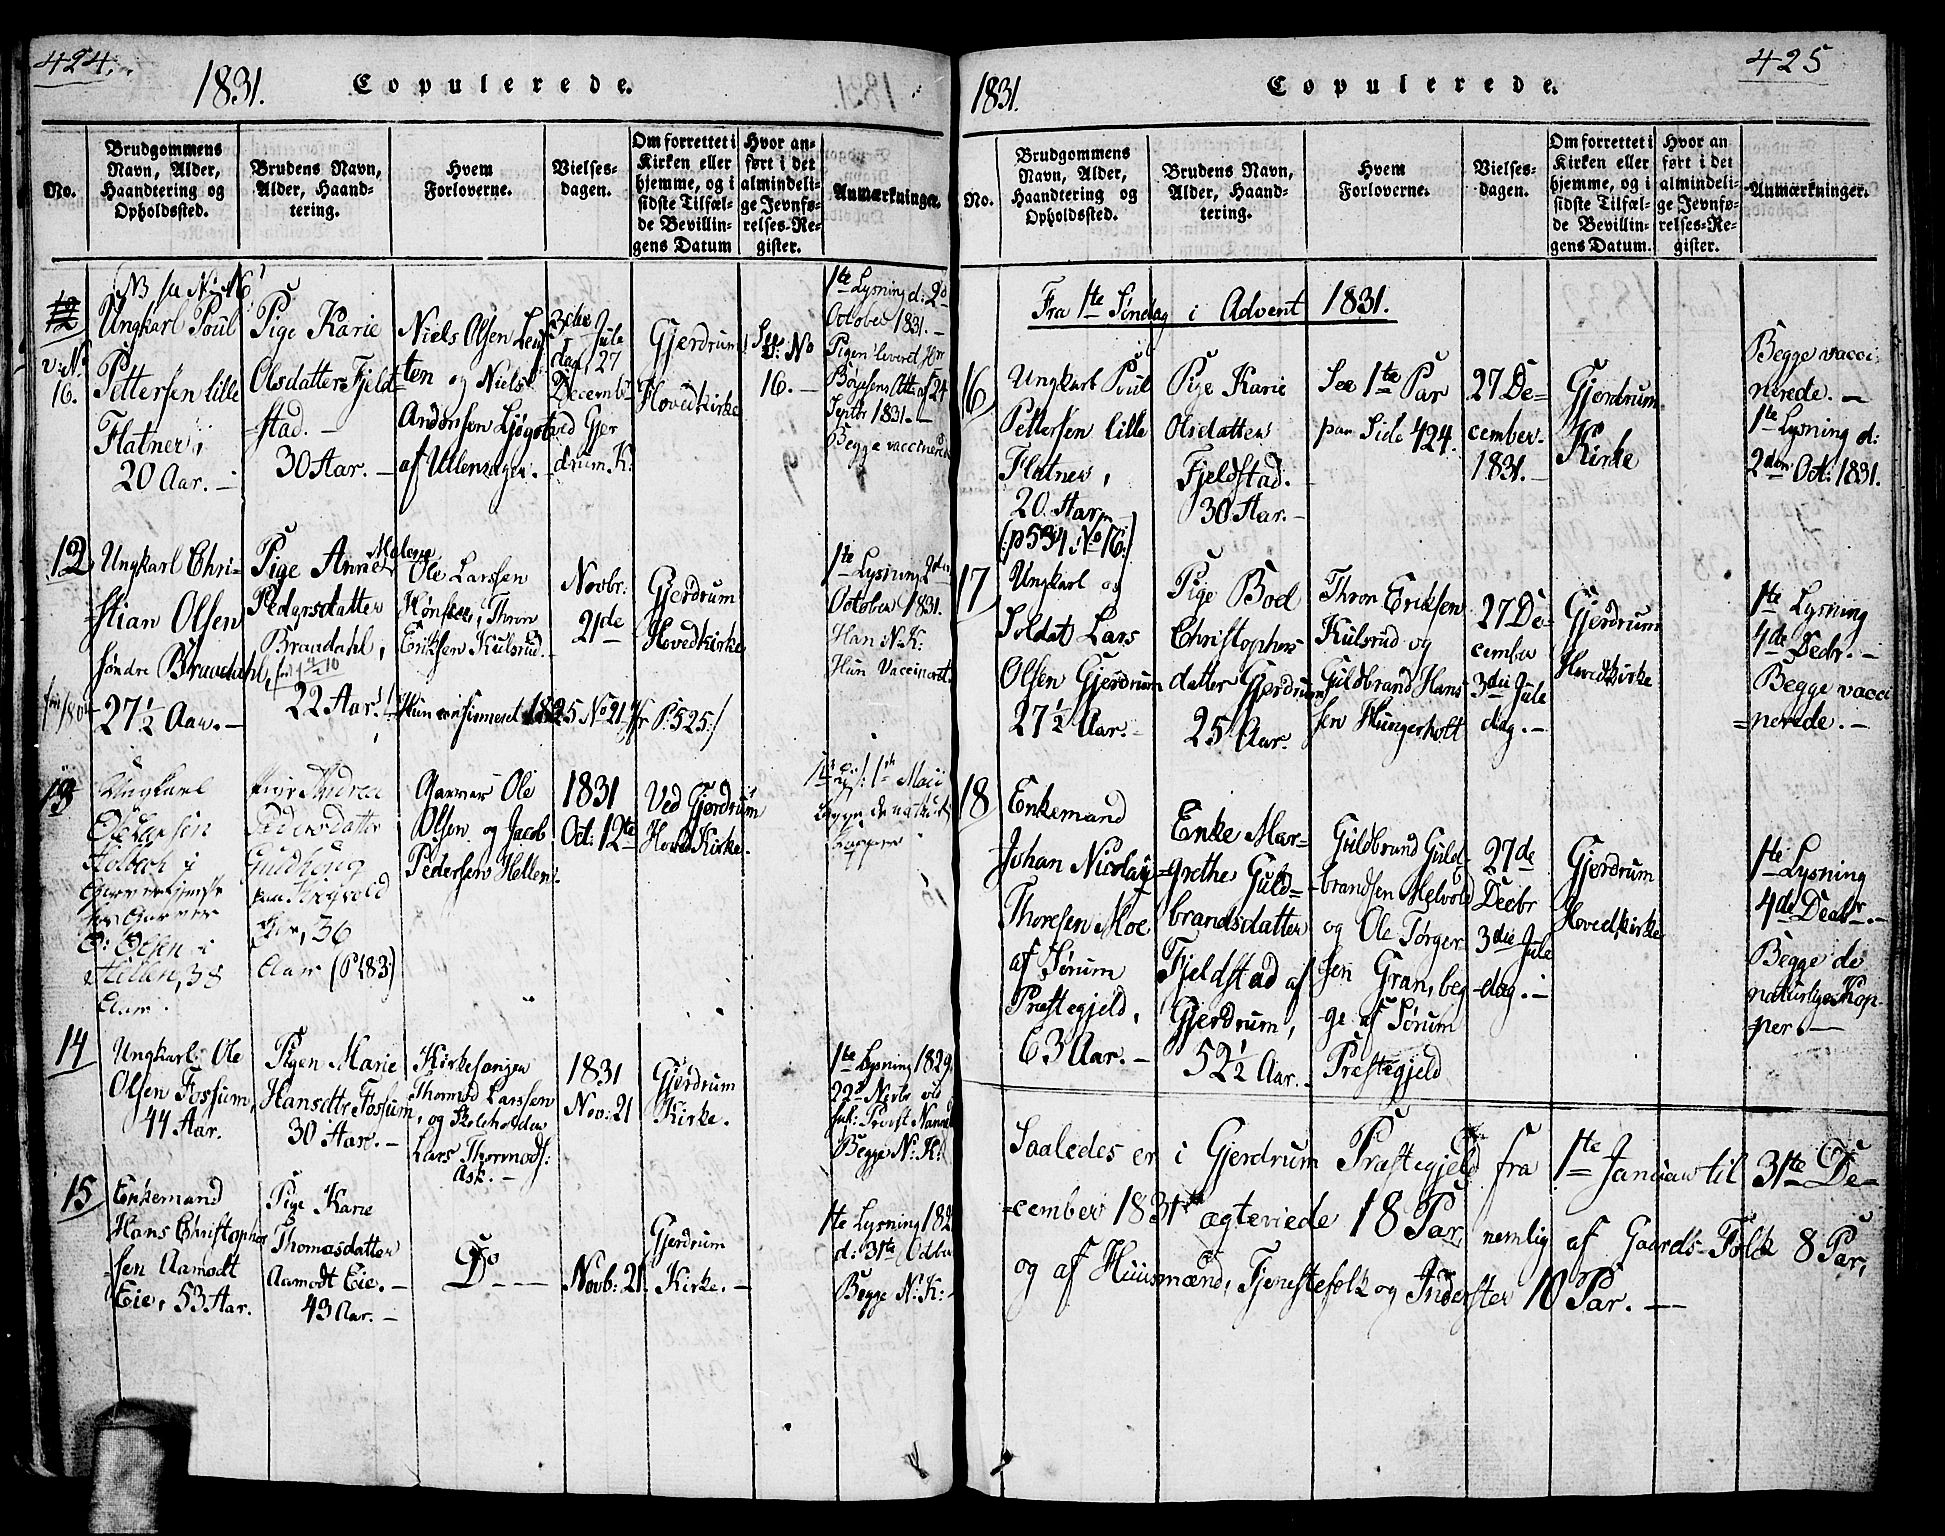 424.
1831. Copulerede.
No.
Brudgommens
Navn, Alder,
Haandtering og
Opholdssted.
Brudens Navn,
Alder, Haand-
tering.
Hvem
Forloverne.
Vielses-
dagen.
Om forrettet i
Kirken eller
hjemme, og i
sidste Tilfæl-
de Bevillin-
gens Datum
Hvor an-
ført i det
almindeli-
ge Jevnfø-
relses-Re-
gister.
Anmærkninger.
12
v: No
16.
Ungkarl Poul
Pettersen lille
Flatner,
20 Aar. —
Pige Karie
Olsdatter Fjeld-
stad. —
30 Aar. —
Niels Olsen
og Niels
Andersen Ljøgot
af Ullensager. —
3die Jule
dag, 27
Decembr
ved Gjer
drum K:
Gjerdrum
Hovedkirke
No
16. —
1te Lysning d: 2d
October 1831. —
Pigen leveret
Attest af 24
Septbr 1831. —
Begge vaccinerede
12
Ungkarl Chri-
stian Olsen
søndre Braadahl,
27½ Aar. —
Pige Anne Malene
Pedersdatter
Braadahl,
22 Aar.
Ole Larssen
Hønsie, Thron
Eriksen Kulsrud. —
Hun confirmeret 1825 No 21 P. 525:/
Novbr:
21de
Gjerdrum
Hovedkirke
1te Lysning 2den
October 1831.
Han N: K:
Hun Vaccineret.
13
Ungkarl
Ole Larsen
Holbech i
Garver
O: Olsen i
Hellen, 38
Aar.
Pige Andrea
Pedersdatter
36
Aar (P 183)
Garver Ole
Olsen og Jacob
Pedersen Hellen.
1831
Oct: 12te
Ved Gjerdrum
Hoved Kirke.
Begge de naturl:
Kopper
14
Ungkarl Ole
Olsen Fossum,
44 Aar.
Pigen Marie
Hansdtr Fossum,
30 Aar. —
Kirkesanger
Thormod Larssen
og Skoleholder
Lars Thormods:
Ask. —
1831
Nov: 21
Gjerdrum
Kirke.
1te Lysning 1829.
22d Novbr ved
Provst
Begge N: K:
15
Enkemand
Hans Christopher
sen Aamodt
Eie, 53 Aar.
Pige Karie
Thomasdatter
Aamodt Eie. —
43 Aar. —
Do — —
Novb: 21.
Gjerdrum
Kirke. —
1te Lysning
d: 31te Octbr
Begge N: K: —
425
1831. Copulerede.
No.
Brudgommens
Navn, Alder,
Haandtering og
Opholdssted.
Brudens Navn,
Alder, Haand-
tering.
Hvem
Forloverne.
Vielses-
dagen.
Om forrettet i
Kirken eller
hjemme, og i
sidste Tilfæl-
de Bevillin-
gens Datum.
Hvor an
ført i det
almindeli-
ge Jevnfø-
relses-Re-
gister.
Anmærkninger.
Fra 1te Søndag i Advent 1831.
16
Ungkarl Poul
Pettersen lille
Flatner,
20 Aar —
(:p 534 No 16:)
Pige Karie
Olsdatter
Fjeldstad.
30 Aar. —
See 1te Par
paa Side 424.
27 De-
cember
1831. —
Gjerdrum
Kirke
Begge vacci-
nerede. —
1te Lysning d:
2den Oct: 1831.
17
Ungkarl og
Soldat Lars
Olsen Gjerdrum
27½ Aar. —
Pige Boel
Christophers-
datter Gjerdrum
25 Aar.
Thron Eriksen
Kulsrud og
Guldbrand Hans-
sen Hungerholt
27 De-
cember
3die Jule
dag. —
Gjerdrum
Hovedkirke
1te Lysning
4de Decbr. —
Begge vacci
=nerede. —
18
Enkemand
Johan Nicolay
Thoresen Moe
af Sørum
Præstegjeld,
63 Aar. —
Enke Mar-
=grethe Guld=
brandsdatter
Fjeldstad af
Gjerdrum,
52½ Aar. —
Guldbrand Guld-
brandsen Melvold
og Ole Torger-
sen Gran, beg-
ge af Sørum
Præstegjeld
27de
Decbr
3die Jule
dag. —
Gjerdrum
Hovedkirke
1te Lysning
4de Decbr. —
Begge de
naturlige Kop-
per. —
Saaledes er i Gjerdrum Præstegjeld fra 1te Januar til 31te De-
=cember 1831 ægteviede 18 Par, nemlig af Gaards-Folk 8 Par,
og af Huusmænd, Tjenestefolk og Inderster 10 Par. —